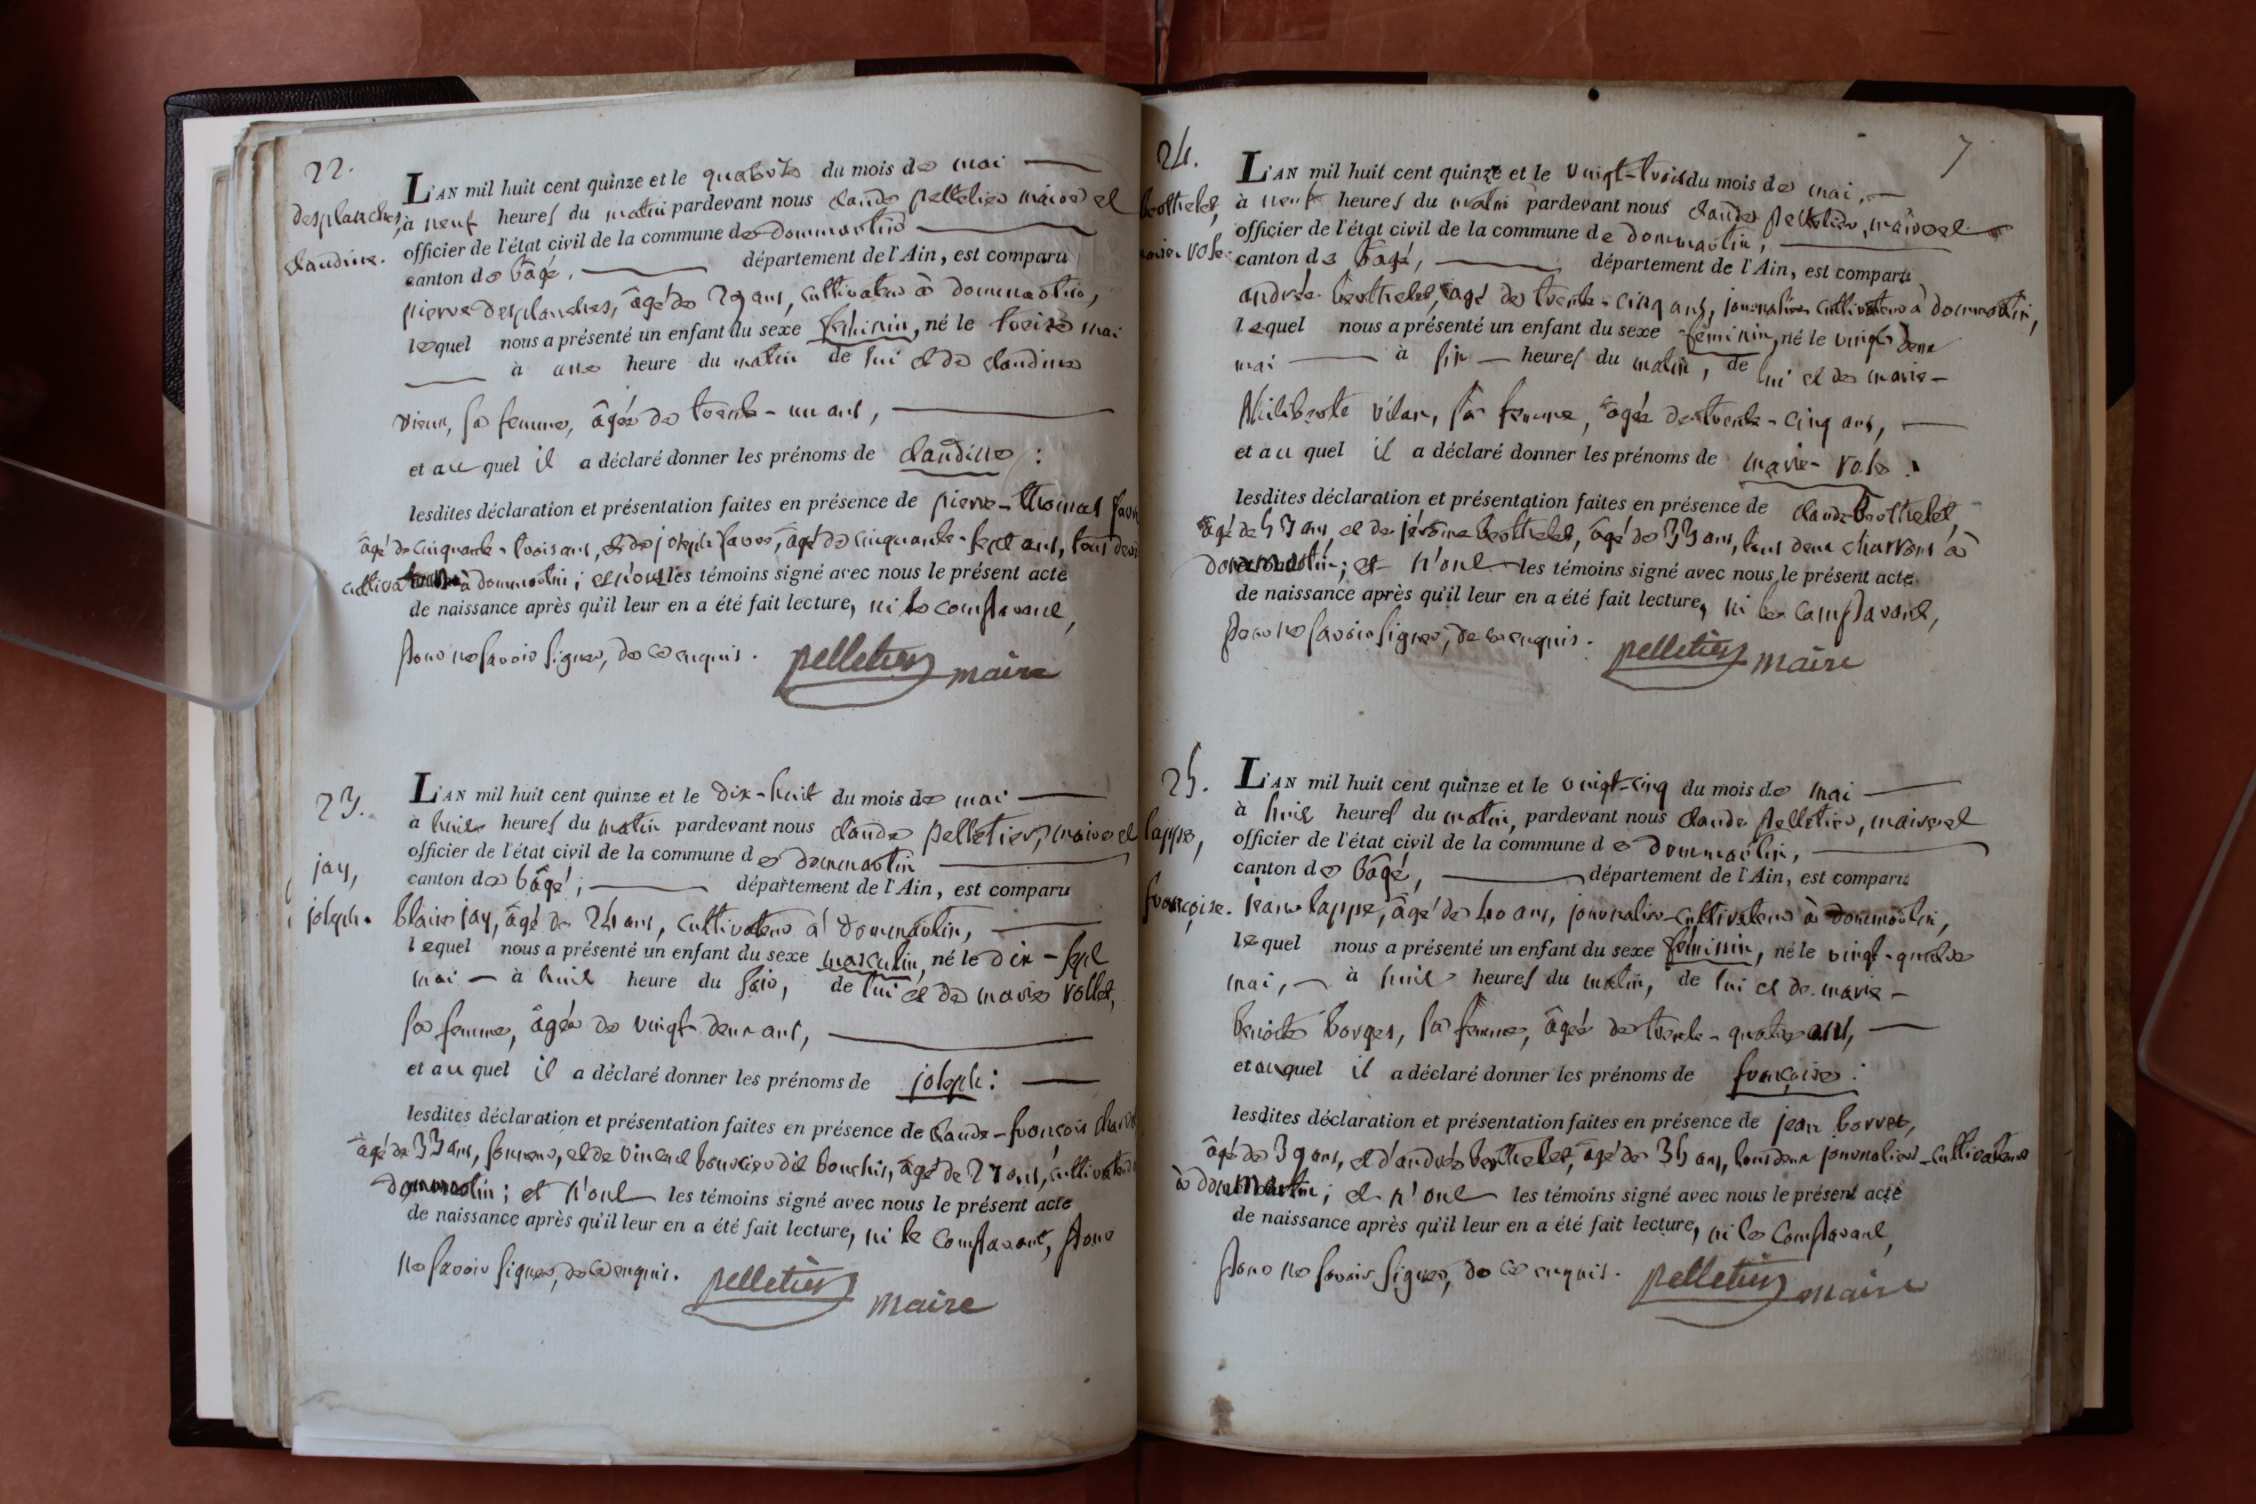 22.
desplanches,
claudine.
L'AN mil huit cent quinze et le quatorze du mois de mai
à neuf heures du matin pardevant nous claude pelletier maire et
officier de l'état civil de la commune de dommartin
canton de bâgé, département de l'Ain, est comparu
pierre desplanches, âgé de 29 ans, cultivateur à dommartin,
lequel nous a présenté un enfant du sexe féminin, né le treize mai
à une heure du matin de lui et de claudine
vieux, sa femme, âgée de trente-un ans,
et au quel il a déclaré donner les prénoms de claudine :
lesdites déclaration et présentation faites en présence de pierre-thomas favre
âgé de cinquante-trois ans, et de joseph favre, âgé de cinquante-sept ans, tous deux
à dommartin ; et n'ont les témoins signé avec nous le présent acte
de naissance après qu'il leur en a été fait lecture, ni le comparant,
pour ne savoir signer, de ce enquis.
pelletier maire
23.
jay,
joseph.
L'AN mil huit cent quinze et le dix-huit du mois de mai
à huit heures du matin pardevant nous claude pelletier, maire et
officier de l'état civil de la commune de dommartin
canton de bâgé, département de l'Ain, est comparu
blaise jay, âgé de 24 ans, cultivateur à dommartin,
lequel nous a présenté un enfant du sexe masculin, né le dix-sept
mai à huit heure du soir, de lui et de marie vollet,
sa femme, âgée de vingt-deux ans,
et au quel il a déclaré donner les prénoms de joseph :
lesdites déclaration et présentation faites en présence de claude-françois
âgé de 33 ans, et de vincent dit bouchis, âgé de 27 ans,
dommartin ; et n'ont les témoins signé avec nous le présent acte
de naissance après qu'il leur en a été fait lecture, ni le comparant, pour
ne savoir signer, de ce enquis.
pelletier maire
7
24.
berthelet,
marie-rose.
L'AN mil huit cent quinze et le vingt-trois du mois de mai,
à neuf heures du matin pardevant nous claude pelletier, maire et
officier de l'état civil de la commune de dommartin,
canton de bâgé, département de l'Ain, est comparu
andré berthelet, âgé de trente-cinq ans, journalier cultivateur à dommartin,
lequel nous a présenté un enfant du sexe féminin, né le vingt deux
mai à six heures du matin, de lui et de marie-
philiberte vilar, sa femme, âgée de trente-cinq ans,
et au quel il a déclaré donner les prénoms de marie-rose :
lesdites déclaration et présentation faites en présence de claude berthelet,
âgé de 53 ans, et de jérôme berthelet, âgé de 33 ans, tous deux charrons à
dommartin ; et n'ont les témoins signé avec nous le présent acte
de naissance après qu'il leur en a été fait lecture, ni le comparant,
pour ne savoir signer, de ce enquis.
pelletier maire
25.
lappe,
françoise.
L'AN mil huit cent quinze et le vingt-cinq du mois de mai
à huit heures du matin, pardevant nous claude pelletier, maire et
officier de l'état civil de la commune de dommartin,
canton de bâgé, département de l'Ain, est comparu
jean lappe, âgé de 40 ans, journalier-cultivateur à dommartin,
lequel nous a présenté un enfant du sexe féminin, né le vingt-quatre
mai, à huit heures du matin, de lui et de marie-
benoite borges, sa femme, âgée de trente-quatre ans,
et auquel il a déclaré donner les prénoms de françoise :
lesdites déclaration et présentation faites en présence de jean borret,
âgé de 39 ans, et d'andré berthelet, âgé de 35 ans, tous deux journaliers-cultivateurs
à dommartin ; et n'ont les témoins signé avec nous le présent acte
de naissance après qu'il leur en a été fait lecture, ni le comparant,
pour ne savoir signer, de ce enquis.
pelletier maire